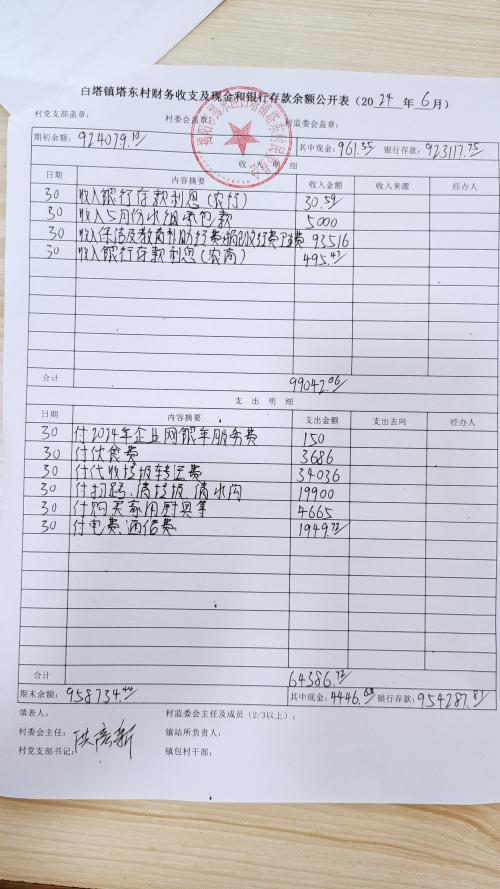 白塔镇塔东村财务收支及现金和银行存款余额公开表（2024年6月）
村党支部盖章： 村委会盖章： 村监委会盖章：
期初余额：924079.10 其中现金：961.35 银行存款：923117.75
收 入 明 细
日期 内容摘要 收入金额 收入来源 经办人
30 收入银行存款利息（农行） 30.59
30 收入5月份水组承包款 5000
30 93516
30 收入银行存款利息（农商） 495.47
合计 99042.06
支 出 明 细
日期 内容摘要 支出金额 支出去向 经办人
30 付2024年企业网银年服务费 150
30 付伙食费 3686
30 付代收垃圾转运费 34036
30 付扫路、清垃圾、清水沟 19900
30 付购买家用厨具等 4665
30 付电费、通信费 1949.72
合计 64386.72
期末余额：958734.44 其中现金：4446.63 银行存款：954287.81
填表人： 村监委会主任及成员（2/3以上）：
村委会主任： 镇站所负责人：
村党支部书记： 镇包村干部：